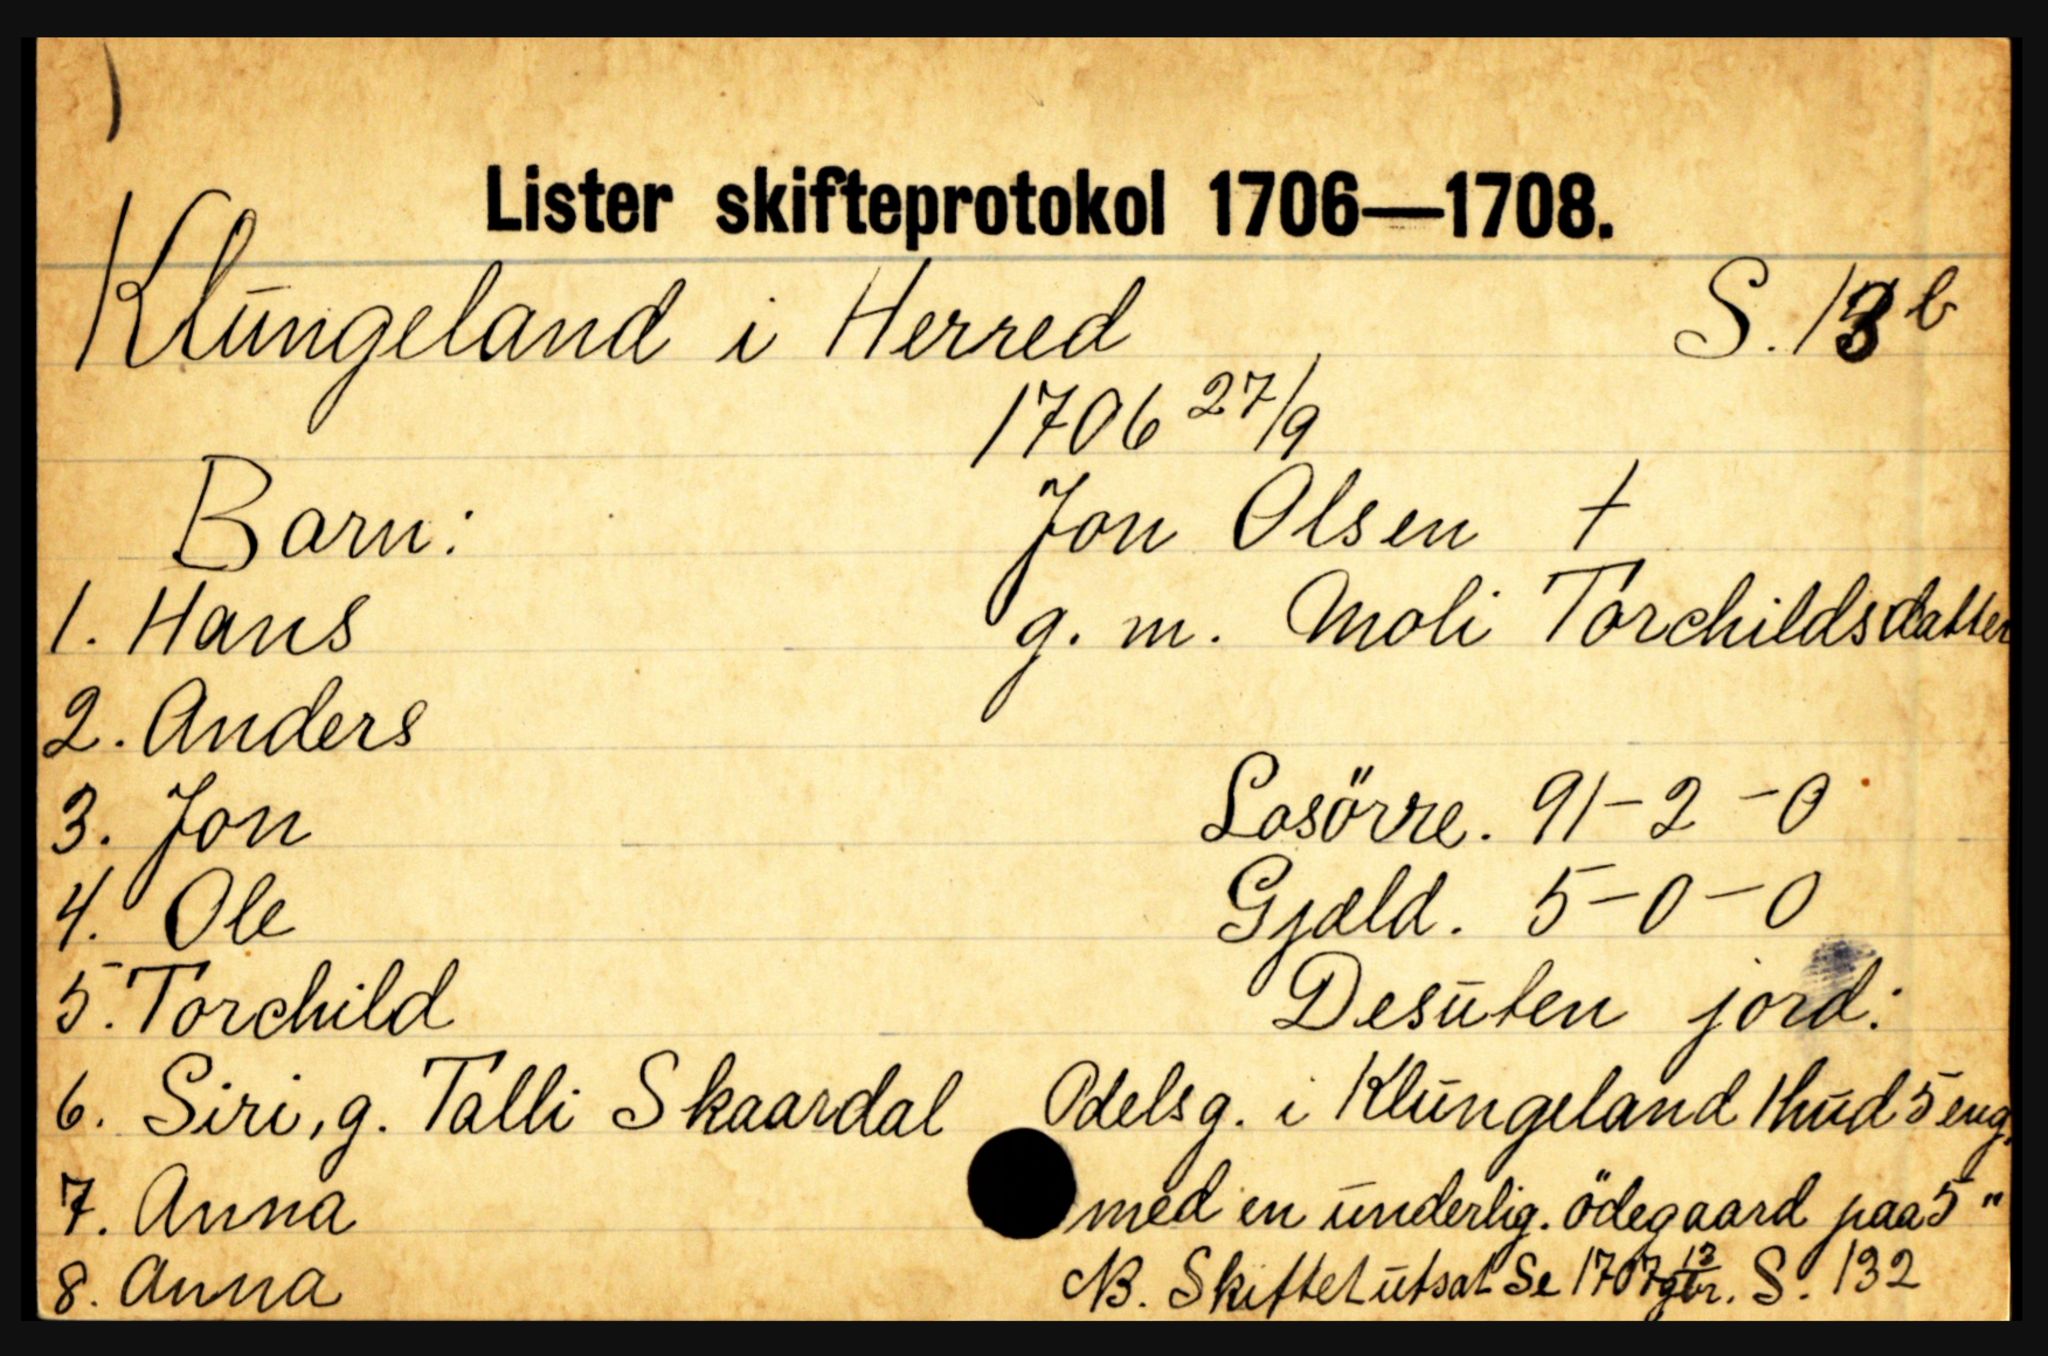 Lister skifteprotokol 1706—1708.
Klungeland i Herred S. 13 b
1706 27/9
Barn: Jon Olsen †
1. Hans g. m. Moli Torchildsdatter
2. Anders
3. Jon Losörre. 91 - 2 - 0
4. Ole Gjæld. 5 - 0 - 0
5. Torchild Desuten jord:
6. Siri, g. Talli Skaardal Odelsg. i Klungeland 1 hud 5 eng.
7. Anna med en underlig. ödegaard paa 5 "
8. Anna NB. Skiftet utsat Se 1707 S. 132